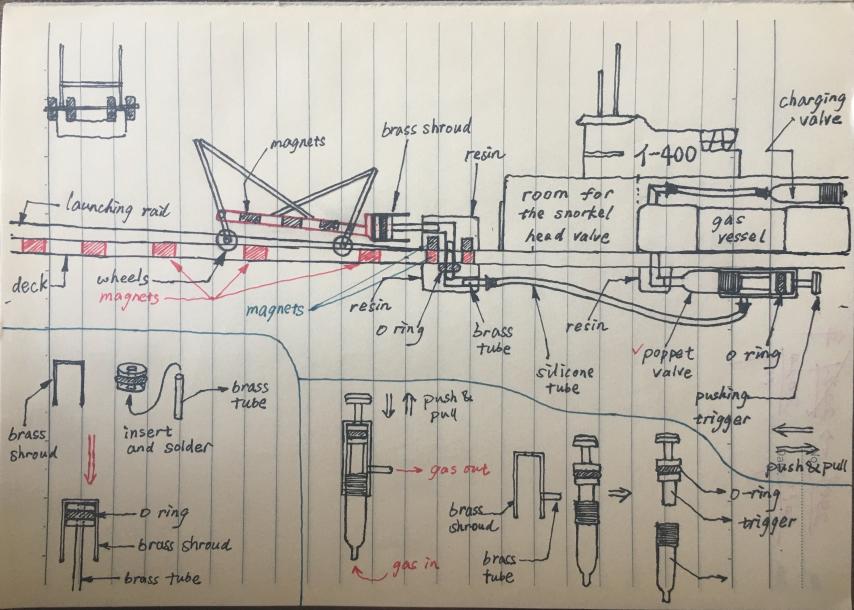 magnets
brass shroud
resin
charging
valve
イ-400
launching rail
room for
the snorkel
head valve
gas
vessel
deck
wheels
magnets
magnets
resin
O ring
brass
tube
silicone
tube
resin
poppet
valve
O ring
pushing
trigger
push & pull
brass
shroud
insert
and solder
brass
tube
O ring
brass shroud
brass tube
push &
pull
gas out
gas in
brass
shroud
brass
tube
O-ring
trigger